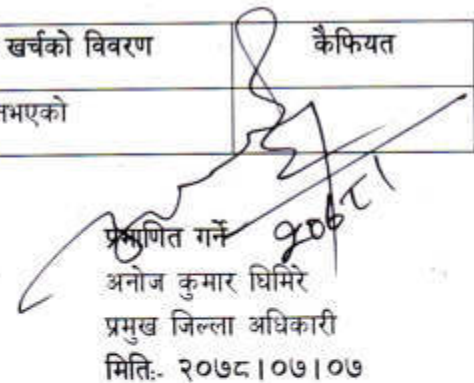 खर्चको विवरण कैफियत
नभएको
प्रमाणित गर्ने
अनोज कुमार घिमिरे
प्रमुख जिल्ला अधिकारी
मिति:- २०७८।०७।०७